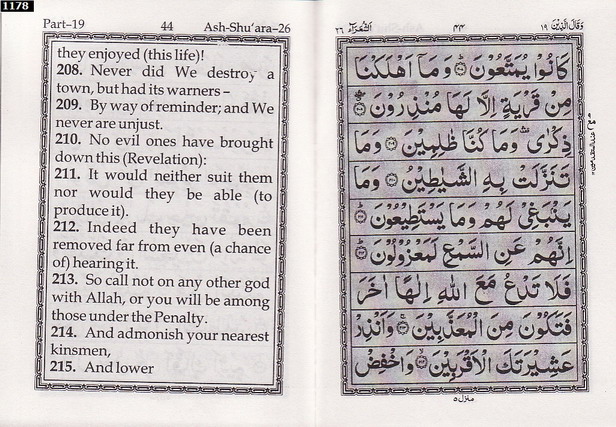 1178
Part–19 44 Ash-Shu'ara–26
they enjoyed (this life)!
208. Never did We destroy a
town, but had its warners –
209. By way of reminder; and We
never are unjust.
210. No evil ones have brought
down this (Revelation):
211. It would neither suit them
nor would they be able (to
produce it).
212. Indeed they have been
removed far from even (a chance
of) hearing it.
213. So call not on any other god
with Allah, or you will be among
those under the Penalty.
214. And admonish your nearest
kinsmen,
215. And lower
الشعراء ٢٦ ٤٤ وقال الذين ١٩
كَانُوا يُمَتَّعُونَ ۝ وَمَا أَهْلَكْنَا
مِنْ قَرْيَةٍ إِلَّا لَهَا مُنْذِرُونَ ۝
ذِكْرٰى وَمَا كُنَّا ظٰلِمِينَ ۝ وَمَا
تَنَزَّلَتْ بِهِ الشَّيٰطِينُ ۝ وَمَا
يَنْبَغِي لَهُمْ وَمَا يَسْتَطِيعُونَ ۝
إِنَّهُمْ عَنِ السَّمْعِ لَمَعْزُولُونَ ۝
فَلَا تَدْعُ مَعَ اللهِ إِلٰهًا اٰخَرَ
فَتَكُونَ مِنَ الْمُعَذَّبِينَ ۝ وَأَنْذِرْ
عَشِيرَتَكَ الْأَقْرَبِينَ ۝ وَاخْفِضْ
منزل ٥